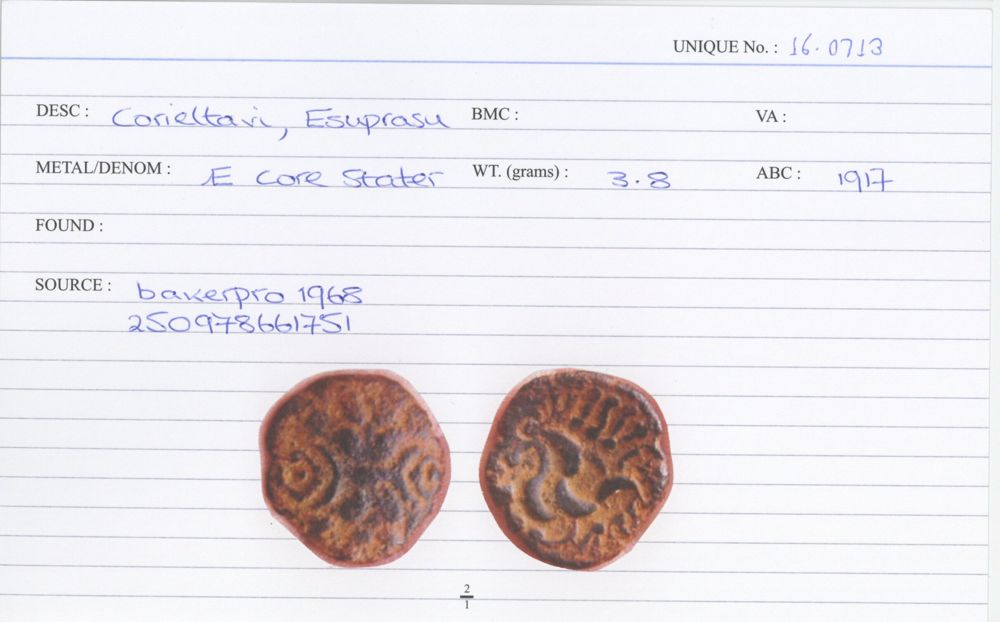 UNIQUE No. : 16.0713
DESC : Corieltavi, Esuprasu BMC : VA :
METAL/DENOM : Æ core Stater WT. (grams) : 3.8 ABC : 1917
FOUND :
SOURCE : bakerpro 1968
250978661751
2
1